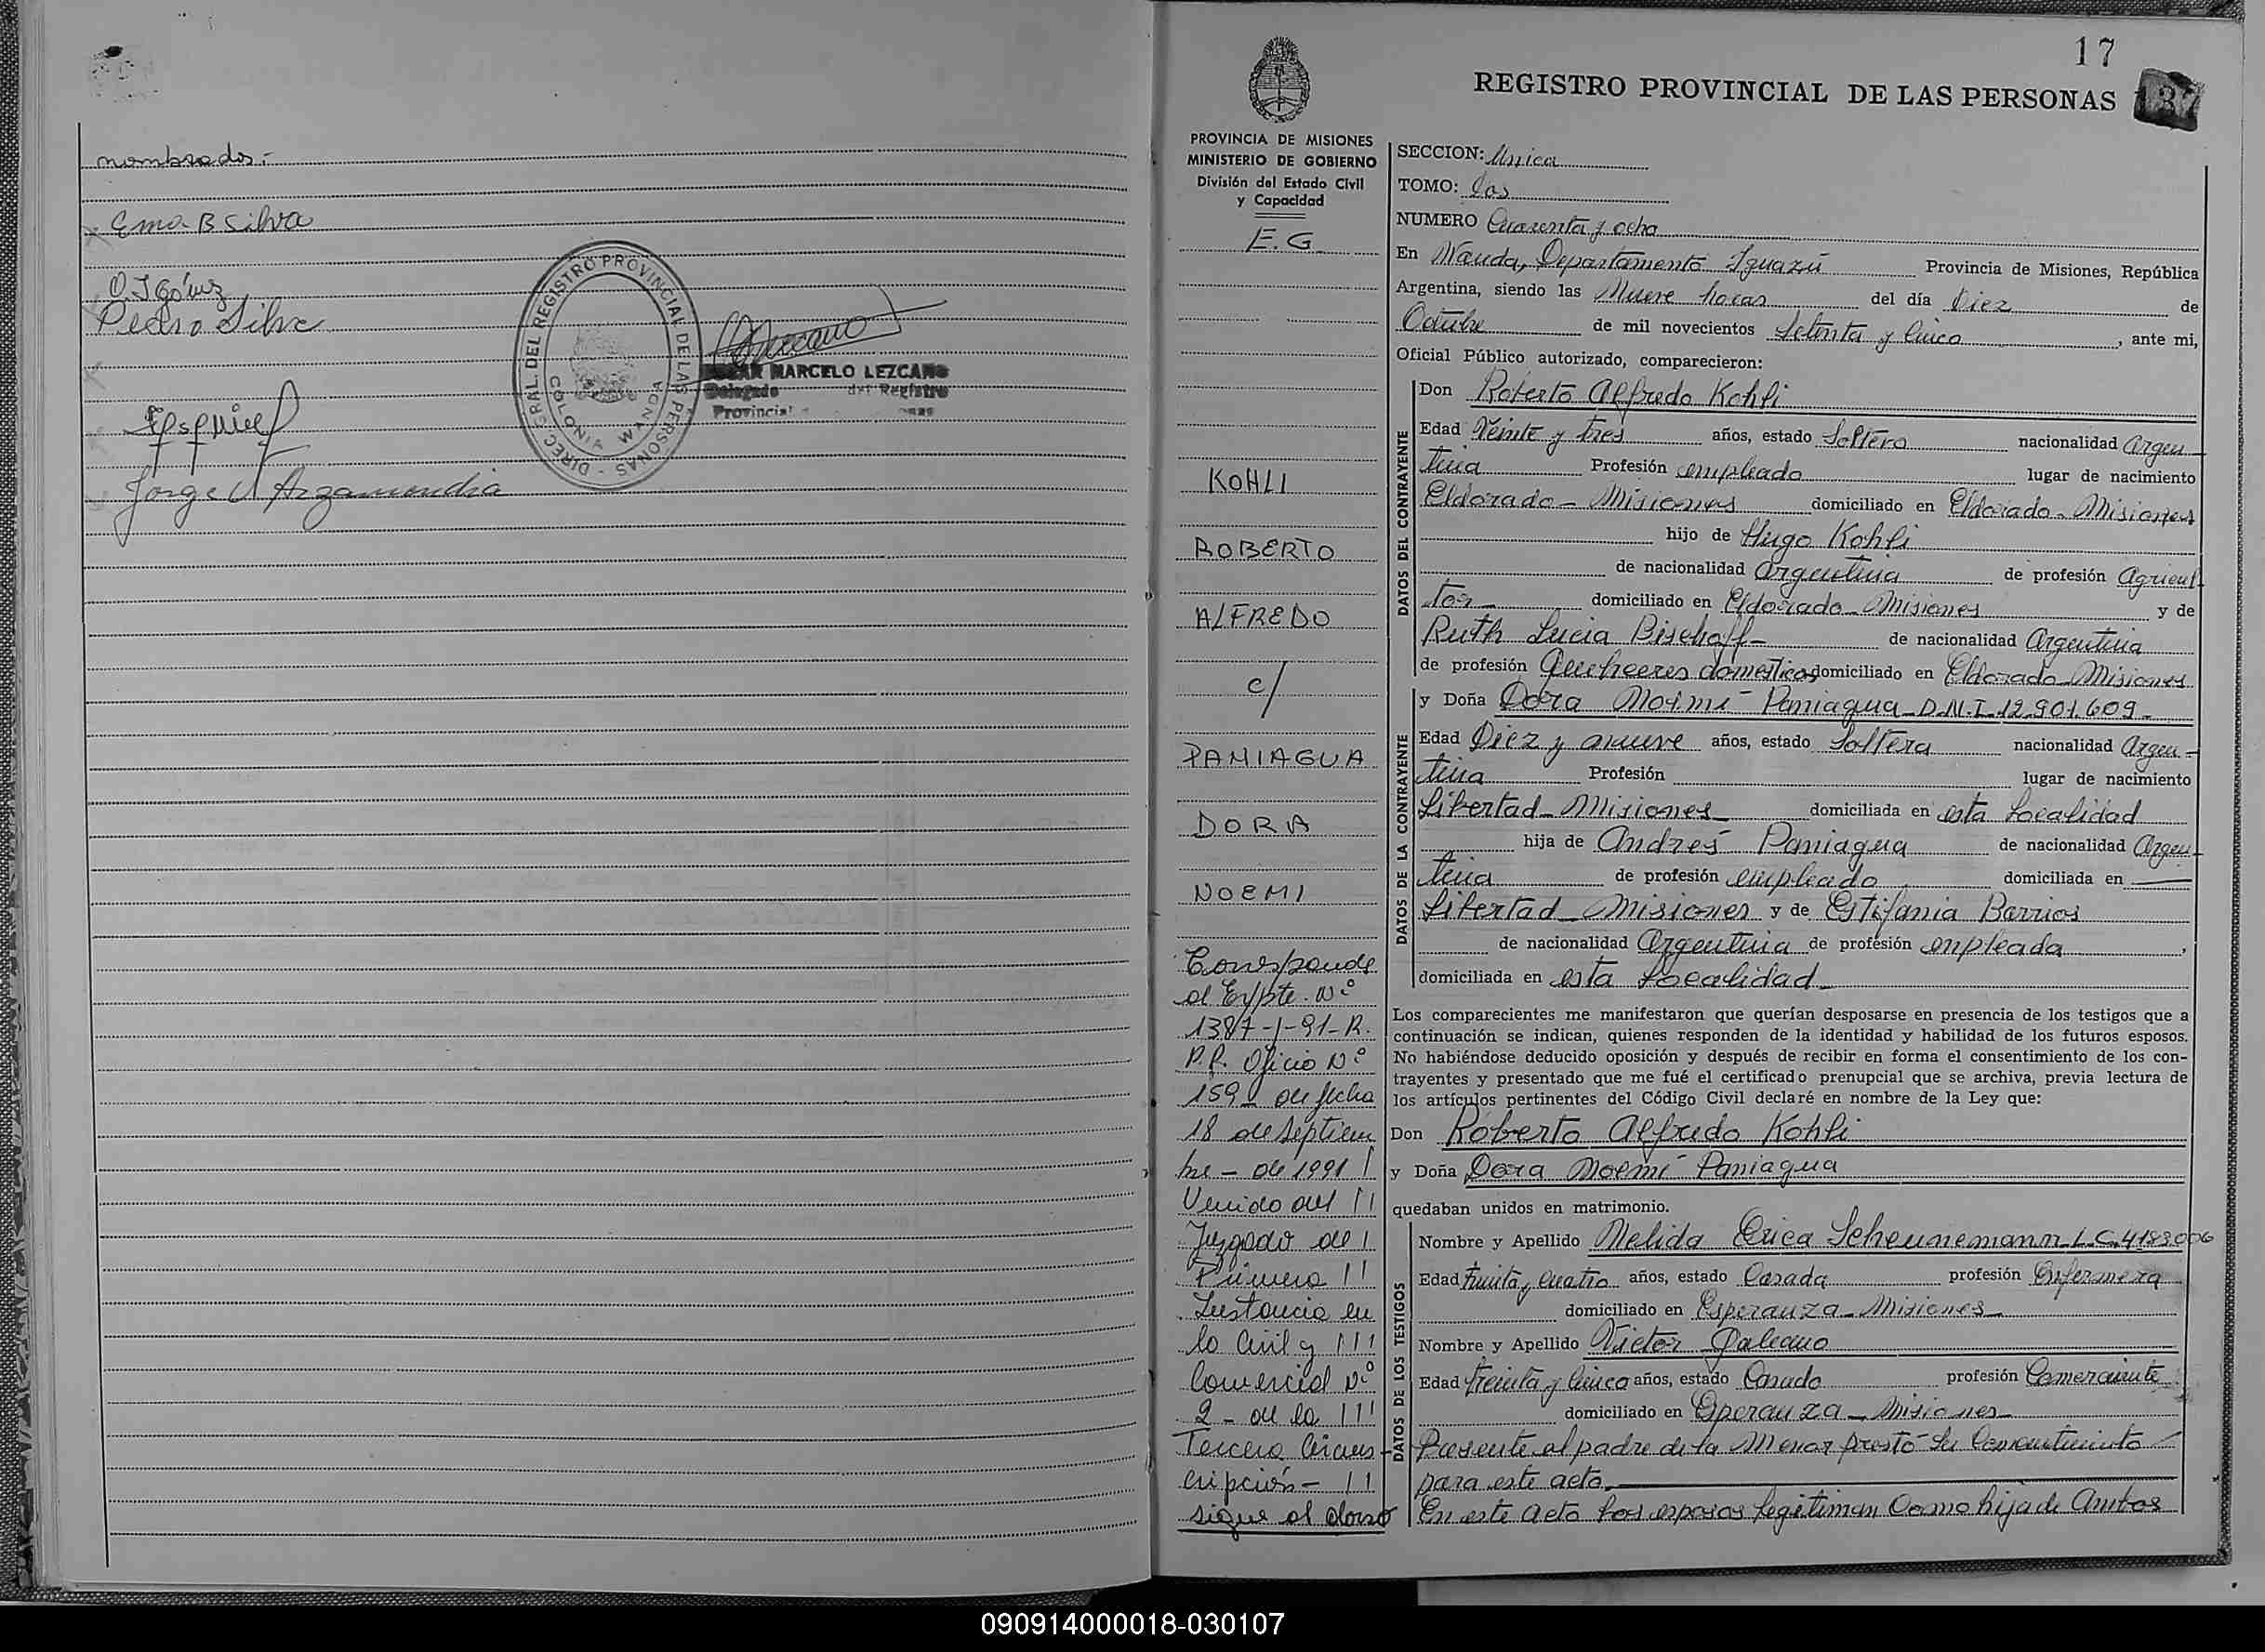 nombrados.-
Ema B Silva
O. I Gómez
Pedro Silva
Jorge Argamendia
DIREC. GRAL. DEL REGISTRO PROVINCIAL DE LAS PERSONAS -
COLONIA WANDA
MARCELO LEZCANO
Delegado del Registro
Provincial
17
REGISTRO PROVINCIAL DE LAS PERSONAS
137
PROVINCIA DE MISIONES
MINISTERIO DE GOBIERNO
División del Estado Civil
y Capacidad
E.G.
KOHLI
ROBERTO
ALFREDO
c/
PANIAGUA
DORA
NOEMI
Corresponde
al Expte. Nº
1387-J-91-R.
P.P. Oficio Nº
159 de fecha
18 de septiem
bre - de 1991
Venido del
Juzgado de
Primera
Instancia en
lo Civil y
Comercial Nº
2 - de la
Tercera Circuns
cripción -
sigue al dorso
SECCION: Unica
TOMO: Dos
NUMERO Cuarenta y ocho
En Wanda, Departamento Iguazú Provincia de Misiones, República
Argentina, siendo las Nueve horas del día Diez de
Octubre de mil novecientos Setenta y Cinco, ante mi,
Oficial Público autorizado, comparecieron:
DATOS DEL CONTRAYENTE
Don Roberto Alfredo Kohli
Edad Veinte y tres años, estado Soltero nacionalidad Argen
tina Profesión empleado lugar de nacimiento
Eldorado - Misiones domiciliado en Eldorado - Misiones
hijo de Hugo Kohli
de nacionalidad Argentina de profesión Agricul
tor - domiciliado en Eldorado - Misiones y de
Ruth Lucia Bischoff - de nacionalidad Argentina
de profesión Quehaceres domesticos domiciliado en Eldorado - Misiones
DATOS DE LA CONTRAYENTE
y Doña Dora Noemí Paniagua - D.N.I. 12.901.609 -
Edad Diez y nueve años, estado Soltera nacionalidad Argen -
tina Profesión lugar de nacimiento
Libertad - Misiones domiciliada en esta Localidad
hija de Andrés Paniagua de nacionalidad Argen
tina de profesión empleado domiciliada en
Libertad - Misiones y de Estifania Barrios
de nacionalidad Argentina de profesión empleada,
domiciliada en esta Localidad -
Los comparecientes me manifestaron que querían desposarse en presencia de los testigos que a
continuación se indican, quienes responden de la identidad y habilidad de los futuros esposos.
No habiéndose deducido oposición y después de recibir en forma el consentimiento de los con-
trayentes y presentado que me fué el certificado prenupcial que se archiva, previa lectura de
los artículos pertinentes del Código Civil declaré en nombre de la Ley que:
Don Roberto Alfredo Kohli
y Doña Dora Noemí Paniagua
quedaban unidos en matrimonio.
DATOS DE LOS TESTIGOS
Nombre y Apellido Nelida Erica Scheunemann L.C. 4183.006
Edad treinta y Cuatro años, estado Casada profesión Enfermera
domiciliado en Esperanza - Misiones
Nombre y Apellido Victor Galeano
Edad treinta y Cinco años, estado Casado profesión Comerciante
domiciliado en Esperanza - Misiones -
Presente el padre de la Menor prestó su Consentimiento
para este acto.
En este Acto los esposos legitiman Como hija de Ambos
090914000018-030107